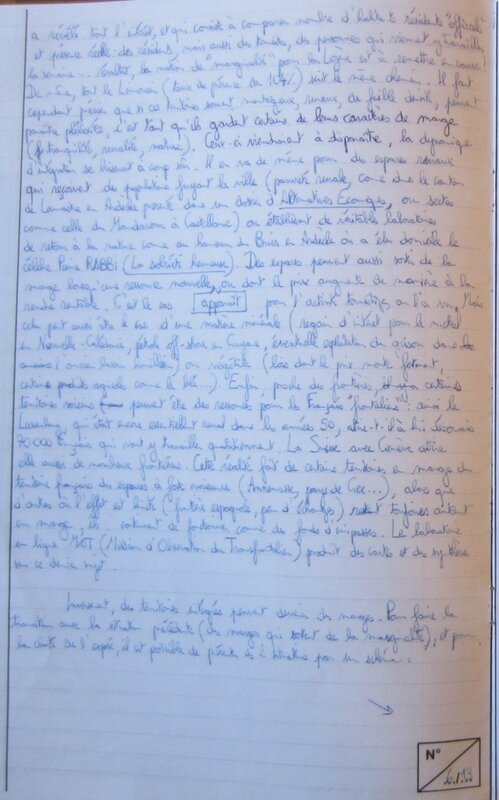 a révélé tout l'intérêt, et qui consiste à comparer nombre d'habitants résidents "officiels"
et présence réelle des résidents, mais aussi des touristes, des personnes qui viennent y travailler
la semaine... résultat, la notion de "marginalité" pour la Lozère est à remettre en cause!
De même, tout le Limousin (taux de présence du 104%) suit le même chemin. Il faut
cependant préciser que si ces territoires souvent montagneux, ruraux, de faible densité, peuvent
paraître plébiscités, c'est tant qu'ils gardent certains de leurs caractères de marge
(tranquilité, ruralité, nature). Ceux-ci viendraient à disparaître, la dynamique
d'intégration se briserait à coup sûr. Il en va de même pour des espaces ruraux
qui reçoivent des populations fuyant la ville (pauvreté rurale, comme dans le canton
de Lamastre en Ardèche présenté dans un dossier d'Alternatives Economiques, ou sectes
comme celle du Mandarom à Castellane) ou établissant de véritables laboratoires
de retour à la nature comme au hameau du Buis en Ardèche où a élu domicile le
célèbre Pierre RABBI (La sobriété heureuse). Des espaces peuvent aussi sortir de la
marge lorsqu'une ressource nouvelle, ou dont le prix augmente de manière à la
rendre rentable. C'est le cas apparaît pour l'activité touristique, on l'a vu. Mais
cela peut aussi être le cas d'une matière minérale (regain d'intérêt pour le nickel
en Nouvelle-Calédonie, pétrole off-shore en Guyane, éventuelle exploitation du grison dans
l'ancien bassin houiller) ou végétale (bois dont le prix monte fortement,
certains produits agricoles comme le blé...). Enfin, proches des frontières, certains
territoires voisins peuvent être des ressources pour les Français "frontaliers": ainsi le
Luxembourg, qui était encore essentiellement rural dans les années 50, attire-t-il à lui désormais
70 000 Français qui vont y travailler quotidiennement. La Suisse avec Genève attire
elle aussi de nombreux frontaliers. Cette réalité fait de certains territoires en marge du
territoire français des espaces à forte croissance (Annemasse, pays de Gex...), alors que
d'autres où l'effet est limité (frontière espagnole, peu d'échanges) restent toujours autant
en marge, et continuent de fonctionner comme des fonds d'impasses. Le laboratoire
en ligne MOT (Mission d'Observation du Transfrontalier) produit des cartes et des synthèses
sur ce dernier sujet.
Inversement, des territoires intégrés peuvent devenir des marges. Pour faire la
transition avec la situation précédente (des marges qui sortent de la marginalité), et pour
la clarté de l'exposé, il est possible de présenter les 2 situations par un schéma :
N°
6.1/13